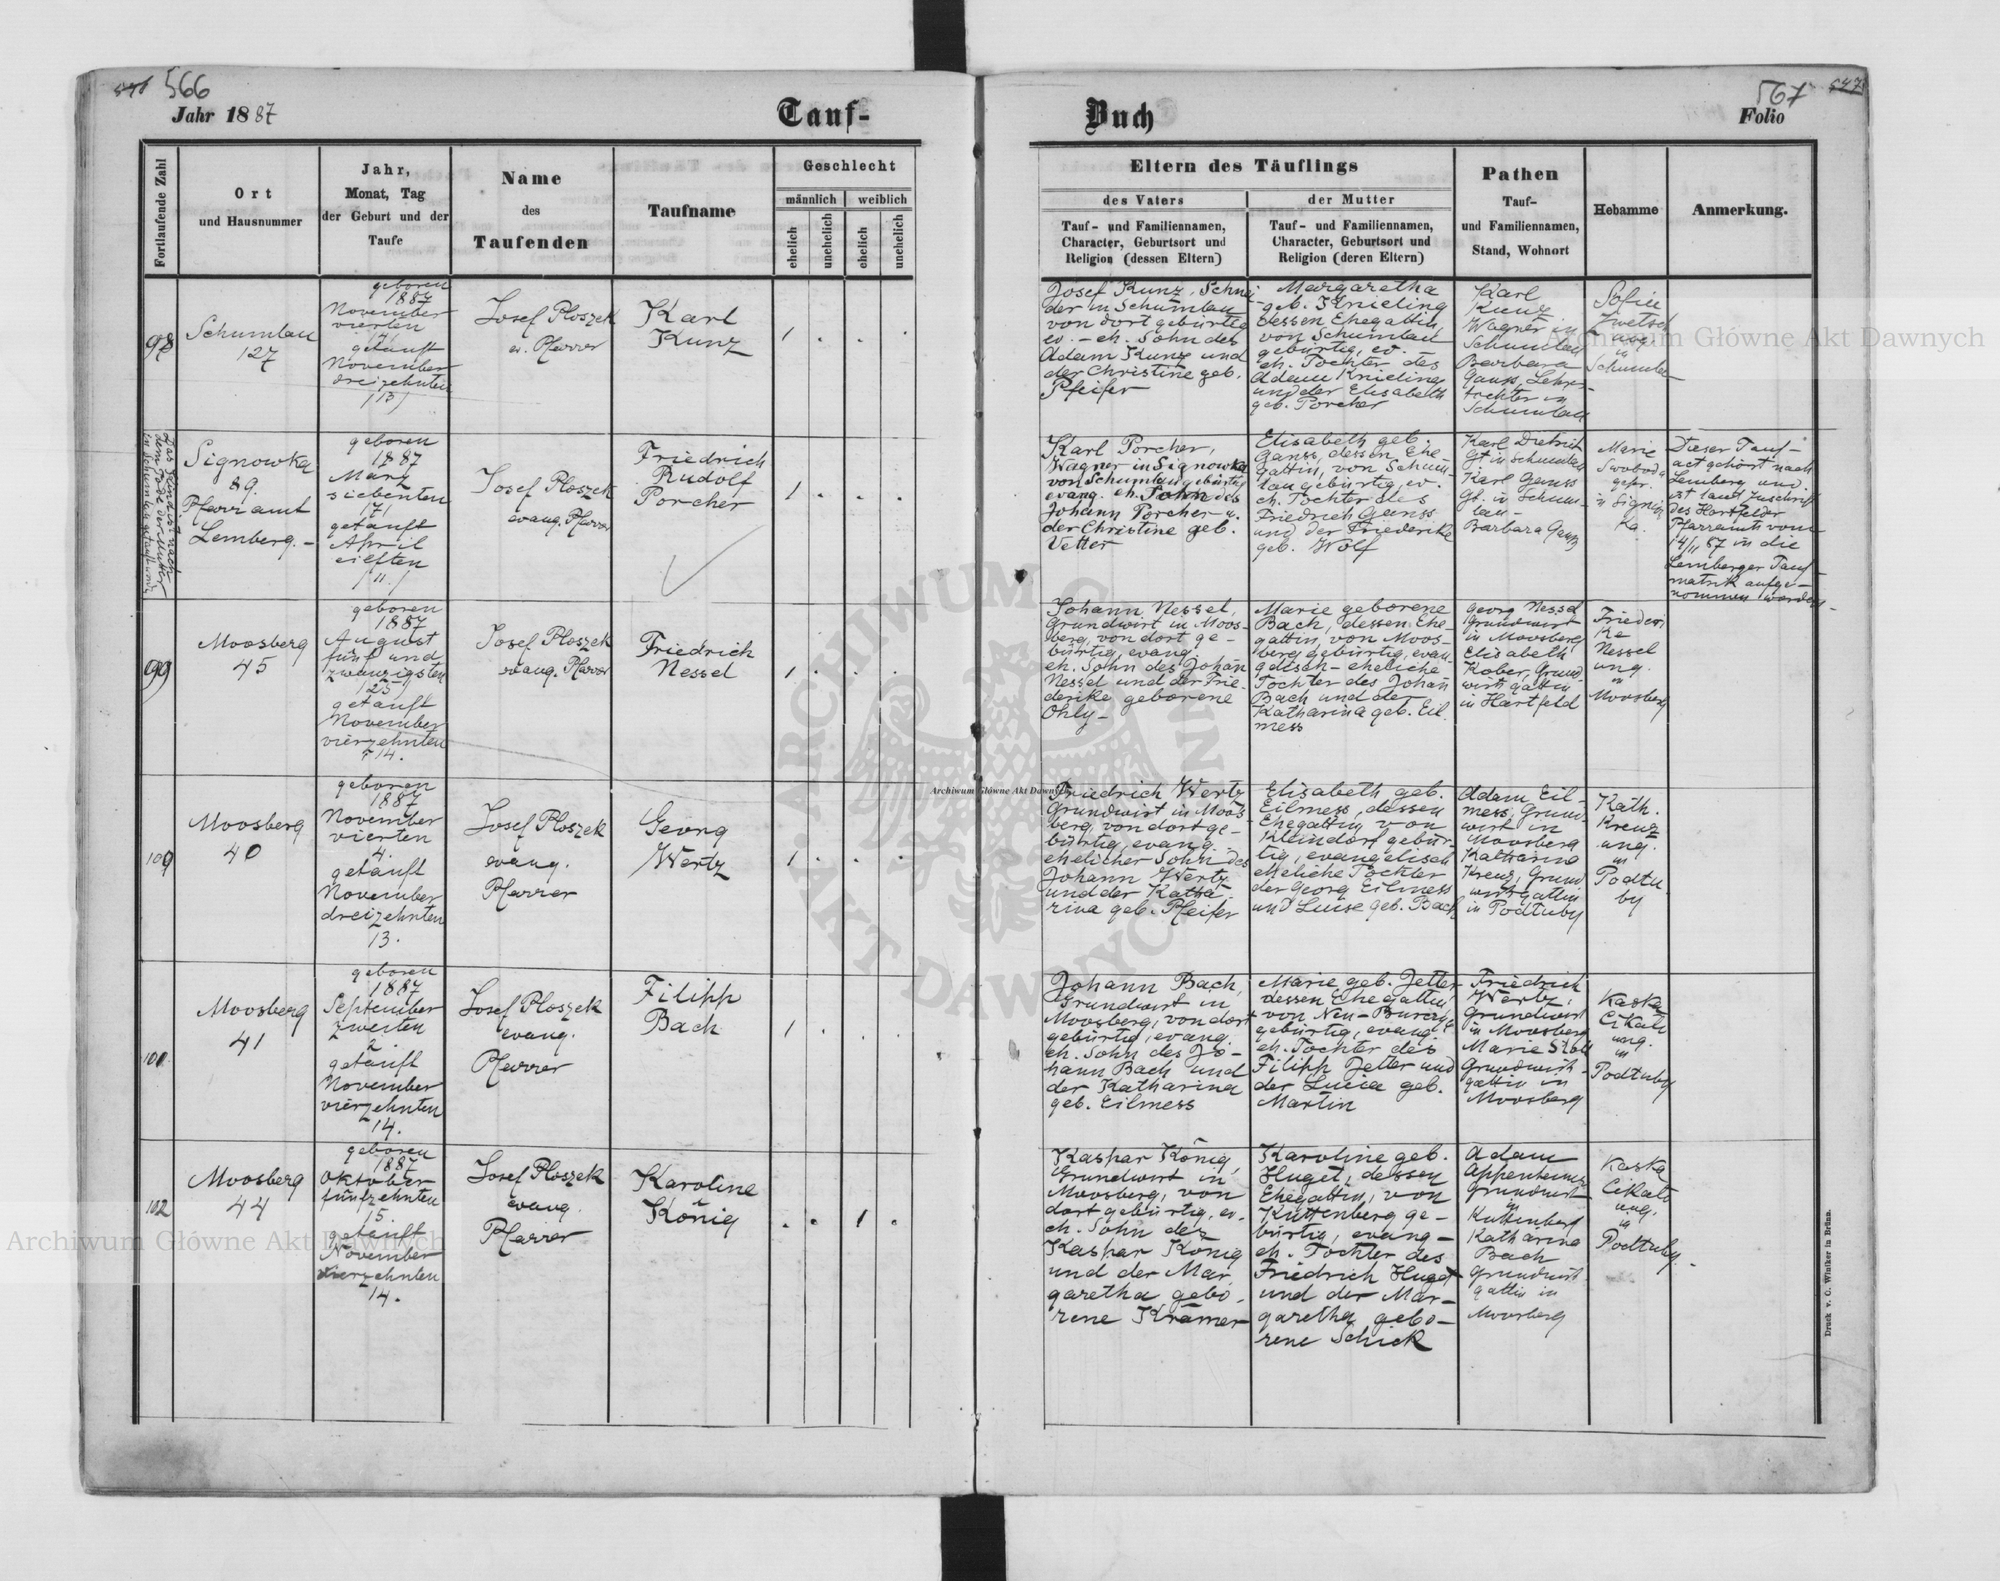 566
Jahr 1887
Tauf-
Fortlaufende Zahl
Ort
und Hausnummer
Jahr,
Monat, Tag
der Geburt und der
Taufe
Name
des
Taufenden
Taufname
Geschlecht
männlich
weiblich
ehelich
unehelich
ehelich
unehelich
98
Schumlau
127
geboren
1887
November
vierten
getauft
November
dreizehnten
/13/
Josef Ploszek
ev. Pfarrer
Karl
Kunz
1 . . .
Das Kind ist nach
dem Tode der Mutter
in Schumlau getauft und
Signowka
89.
Pfarramt
Lemberg. -
geboren
1887
März
siebenten
/7/
getauft
April
eilften
/11./
Josef Ploszek
evang. Pfarrer
Friedrich
Rudolf
Porcher
1 . . .
99
Moosberg
45
geboren
1887
August
fünf und
zwanzigsten
/25/
getauft
November
vierzehnten
14.
Josef Ploszek
evang. Pfarrer
Friedrich
Nessel
1 . . .
100
Moosberg
40
geboren
1887
November
vierten
4.
getauft
November
dreizehnten
13.
Josef Ploszek
evang.
Pfarrer
Georg
Wertz
1 . . .
Moosberg
41
geboren
1887
September
zweiten
2.
getauft
November
vierzehnten
14.
Josef Ploszek
evang.
Pfarrer
Filipp
Bach
1 . . .
102
Moosberg
44
geboren
1887
Oktober
fünfzehnten
15.
getauft
November
vierzehnten
14.
Josef Ploszek
evang.
Pfarrer
Karoline
König
. . 1 .
Buch
567
547
Folio
Eltern des Täuflings
des Vaters
Tauf- und Familiennamen,
Character, Geburtsort und
Religion (dessen Eltern)
der Mutter
Tauf- und Familiennamen,
Character, Geburtsort und
Religion (deren Eltern)
Pathen
Tauf-
und Familiennamen,
Stand, Wohnort
Hebamme
Anmerkung.
Josef Kunz, Schnei-
der in Schumlau
von dort gebürtig
ev. - eh. Sohn des
Adam Kunz und
der Christine geb.
Pfeifer
Margaretha
geb. Knieling
dessen Ehegattin,
von Schumlau
gebürtig, ev. -
eh. Tochter des
Adam Knieling
und der Elisabeth
geb. Porcher
Karl
Kunz
Wagner in
Schumlau
Barbara
Ganss, Lehrers-
tochter in
Schumlau
Sofie
in
Schumlau
Karl Porcher,
Wagner in Signowka
von Schumlau gebürtig
evang. eh. Sohn des
Johann Porcher u.
der Christine geb.
Vetter
Elisabeth geb.
Ganss, dessen Ehe-
gattin, von Schum-
lau gebürtig, ev.
eh. Tochter des
Friedrich Ganss
und der Friederike
geb. Wolf
Karl Dietrich
Gt. in Schumlau
Karl Ganss
Gt. in Schum-
lau -
Barbara Ganss
Marie
Swoboda
gepr.
in Signow
ka.
Dieser Tauf-
act gehört nach
Lemberg und
ist laut Zuschrift
des Hartfelder
Pfarramts vom
14/11 87 in die
Lemberger Tauf-
matrik aufge-
nommen worden.
Johann Nessel,
Grundwirt in Moos-
berg, von dort ge-
bürtig, evang.
eh. Sohn des Johann
Nessel und der Frie-
derike geborene
Ohly-
Marie geborene
Bach, dessen Ehe-
gattin, von Moos-
berg gebürtig, evan-
gelisch - eheliche
Tochter des Johann
Bach und der
Katharina geb. Eil
mess
Georg Nessel
Grundwirt
in Moosberg
Elisabeth
Kober, Grund-
wirts gattin
in Hartfeld
Friederi
ke
Nessel
ung.
in
Moosberg
Friedrich Wertz
Grundwirt in Moos-
berg, von dort ge-
bürtig, evang.
ehelicher Sohn des
Johann Wertz
und der Katha-
rina geb. Pfeifer
Elisabeth geb.
Eilmess, dessen
Ehegattin von
Kleindorf gebür-
tig, evangelisch
eheliche Tochter
der Georg Eilmess
und Luise geb. Bach
Adam Eil-
mess, Grund-
wirt in
Moosberg
Katharina
Kreuz, Grund
wirts gattin
in Podtuby
Kath.
Kreuz
ung.
in
Podtu
by
Johann Bach,
Grundwirt in
Moosberg, von dort
gebürtig, evang.
eh. Sohn des Jo-
hann Bach und
der Katharina
geb. Eilmess
Marie geb. Jetter
dessen Ehegattin,
von Neu-
gebürtig, evang.
eh. Tochter des
Filipp Jetter und
der Lucia geb.
Martin
Friedrich
Wertz,
Grundwirt
in Moosberg
Marie
Grundwirts-
gattin in
Moosberg
Kaska
Cikalo
ung.
in
Podtuby
Kaspar König,
Grundwirt in
Moosberg, von
dort gebürtig, ev.
eh. Sohn des
Kaspar König
und der Mar
garetha gebo-
rene Krämer
Karoline geb.
Huget, dessen
Ehegattin, von
Kuttenberg ge-
bürtig, evang-
eh. Tochter des
Friedrich Huget
und der Mar-
garetha gebo-
rene Schick
Adam
Appenheimer
Grundwirt
in
Kuttenberg
Katharina
Bach
Grundwirts
gattin in
Moosberg
Kaska
Cikalo
ung.
in
Podtuby.
Druck v. C. Winiker in Brünn.
Archiwum Główne Akt Dawnych
Archiwum Główne Akt Dawnych
Archiwum Główne Akt Dawnych
ARCHIWUM GŁÓWNE AKT DAWNYCH